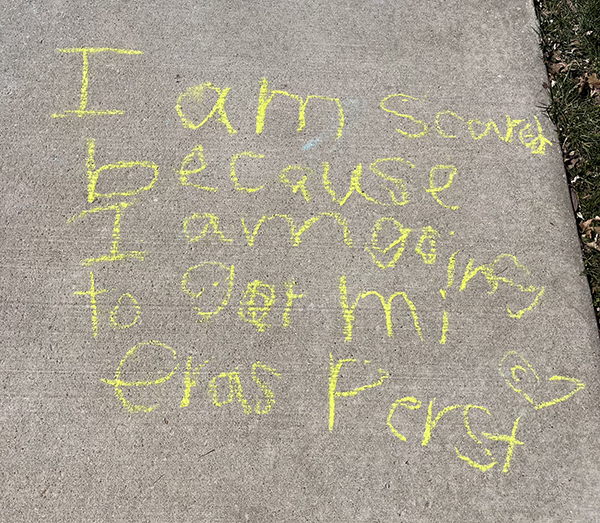 I am scared
because
I am going
to get mi
eras Perst